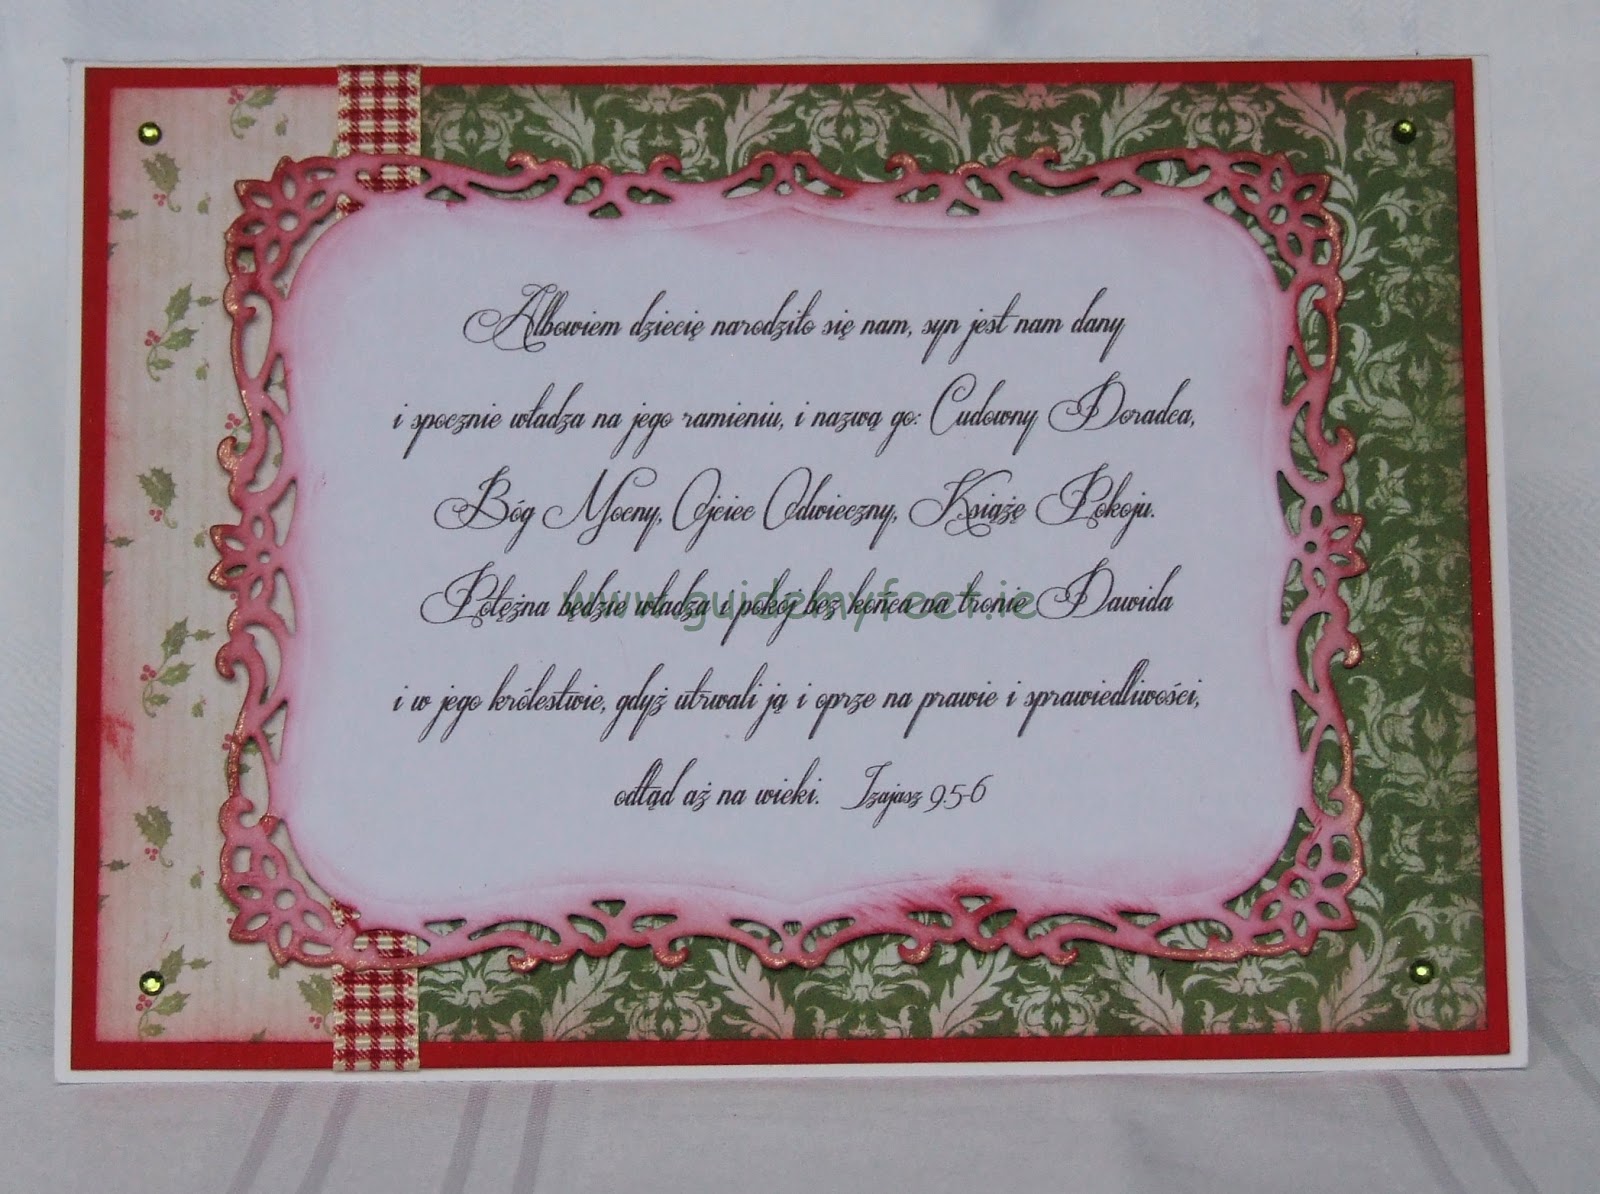 Albowiem dziecię narodziło się nam, syn jest nam dany
i spocznie władza na jego ramieniu, i nazwą go: Cudowny Doradca,
Bóg Mocny, Ojciec Odwieczny, Książę Pokoju.
Potężna będzie władza i pokój bez końca na tronie Dawida
www.guidemyfeet.ie
i w jego królestwie, gdyż utrwali ją i oprze na prawie i sprawiedliwości,
odtąd aż na wieki. Izajasz 9.5-6